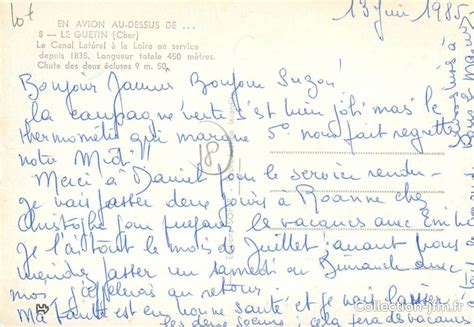 lot
13 Juin 1985
EN AVION AU-DESSUS DE...
8 - LE GUETIN (Cher)
Le Canal Latéral à la Loire en service
depuis 1835. Longueur totale 450 mètres.
Chute des deux écluses 9 m. 50.
Bonjour Bonjour Suzon
la campagne verte c'est bien joli mais le
thermomètre qui marque 5° nous fait regretter
notre Midi!
8
Merci à Daniel pour le service rendu
Je vais passer deux jours à Roanne chez
Christophe pour préparer les vacances avec
Je l'ai tout le mois de Juillet: avant vous
passer un samedi ou Dimanche avec
moi j'appellerai au retour.
Ma santé est en bonne santé et je vais
Collection-jfm.fr
les deux sera de vacances